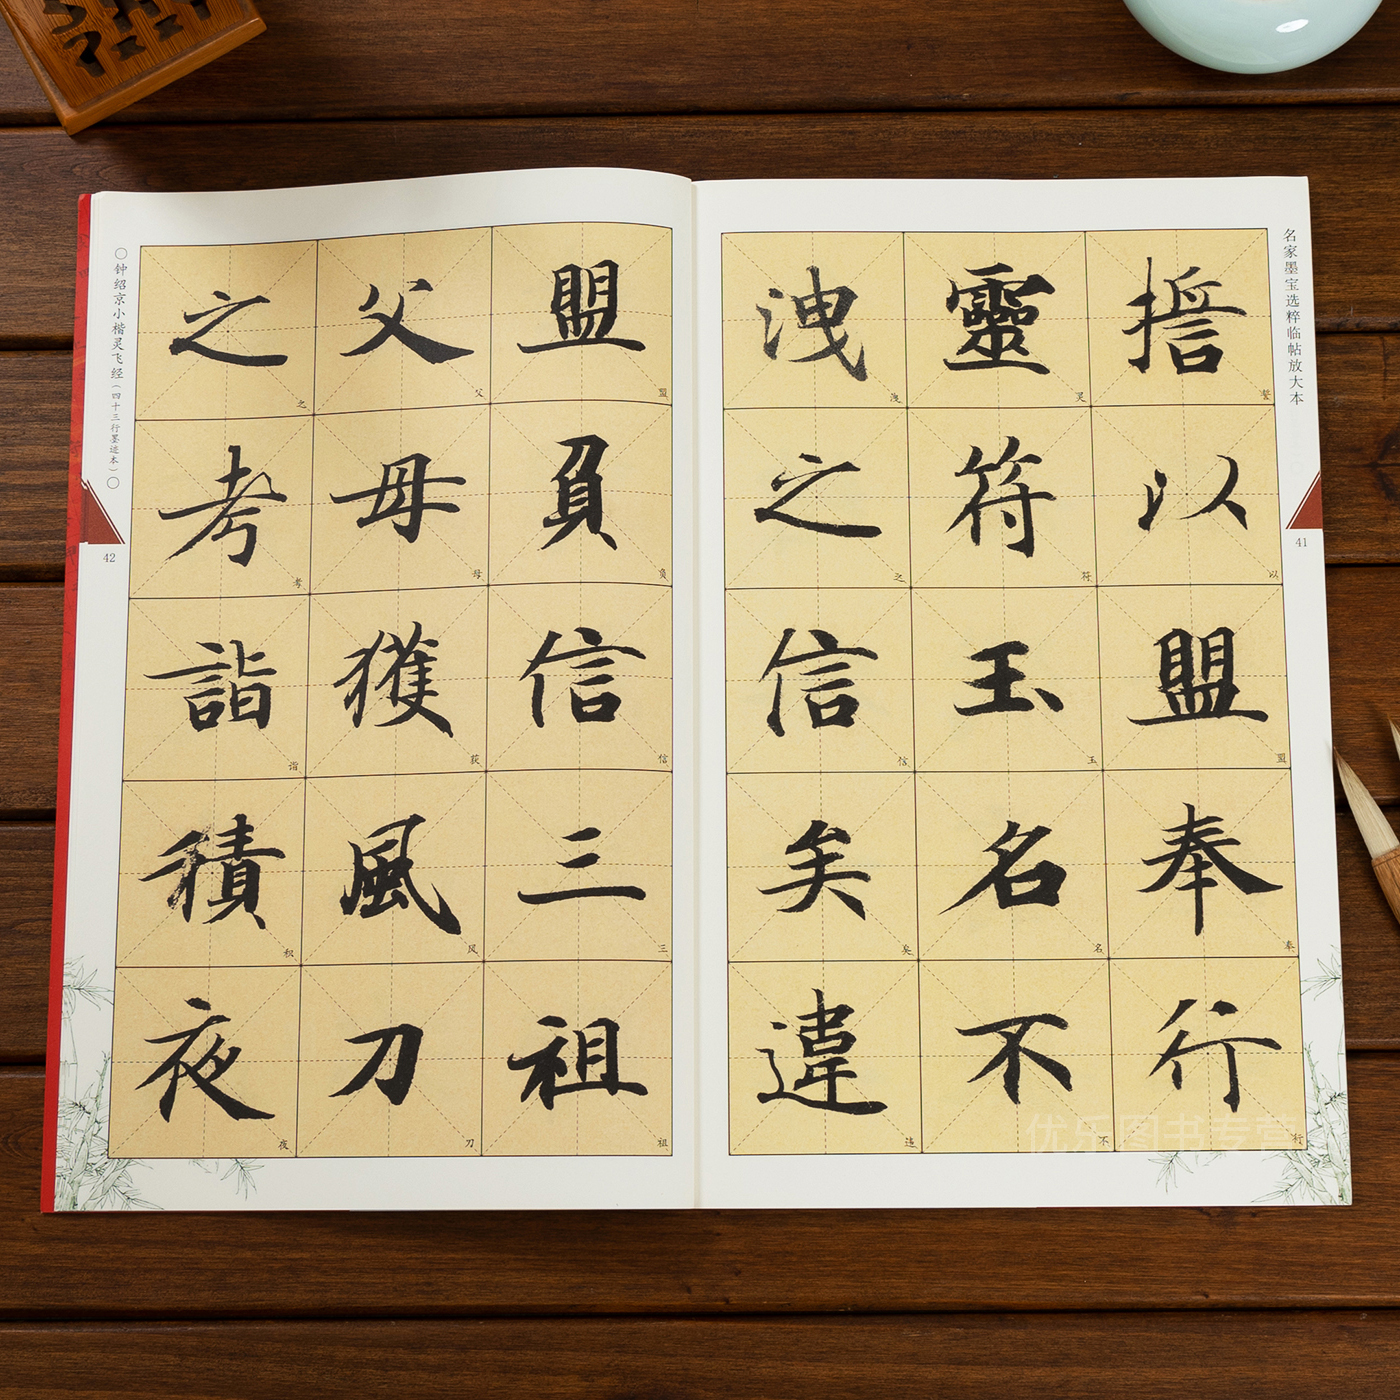 名家墨宝选粹临帖放大本
41
誓以盟奉行
誓以盟奉行
靈符玉名不
灵符玉名不
洩之信矣違
洩之信矣违
盟負信三祖
盟负信三祖
父母獲風刀
父母获风刀
之考詣積夜
之考诣积夜
○钟绍京小楷灵飞经(四十三行墨迹本)○
42
优乐图书专营